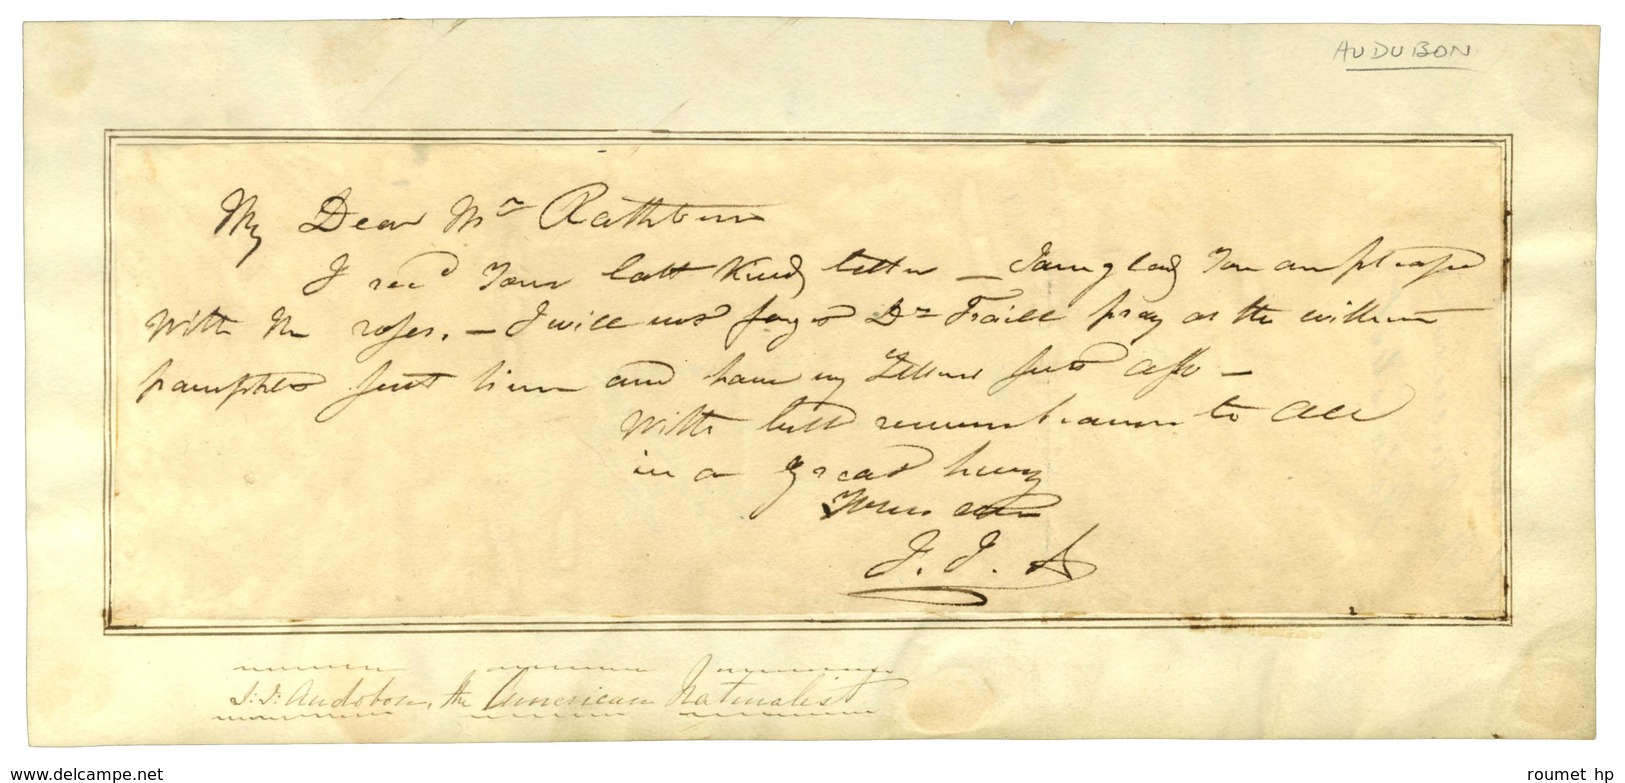 AUDUBON
My Dear Mr Rathbone
I recd Your last Kind letter — I am glad You are pleased
With the roses. — I will not forget Dr Traill pray as the
pamphlet sent him and have my
With best remembrances to all
in a great hurry
Yours
J. J. A
J: J: Audobon, the American Naturalist
www.delcampe.net
roumet hp